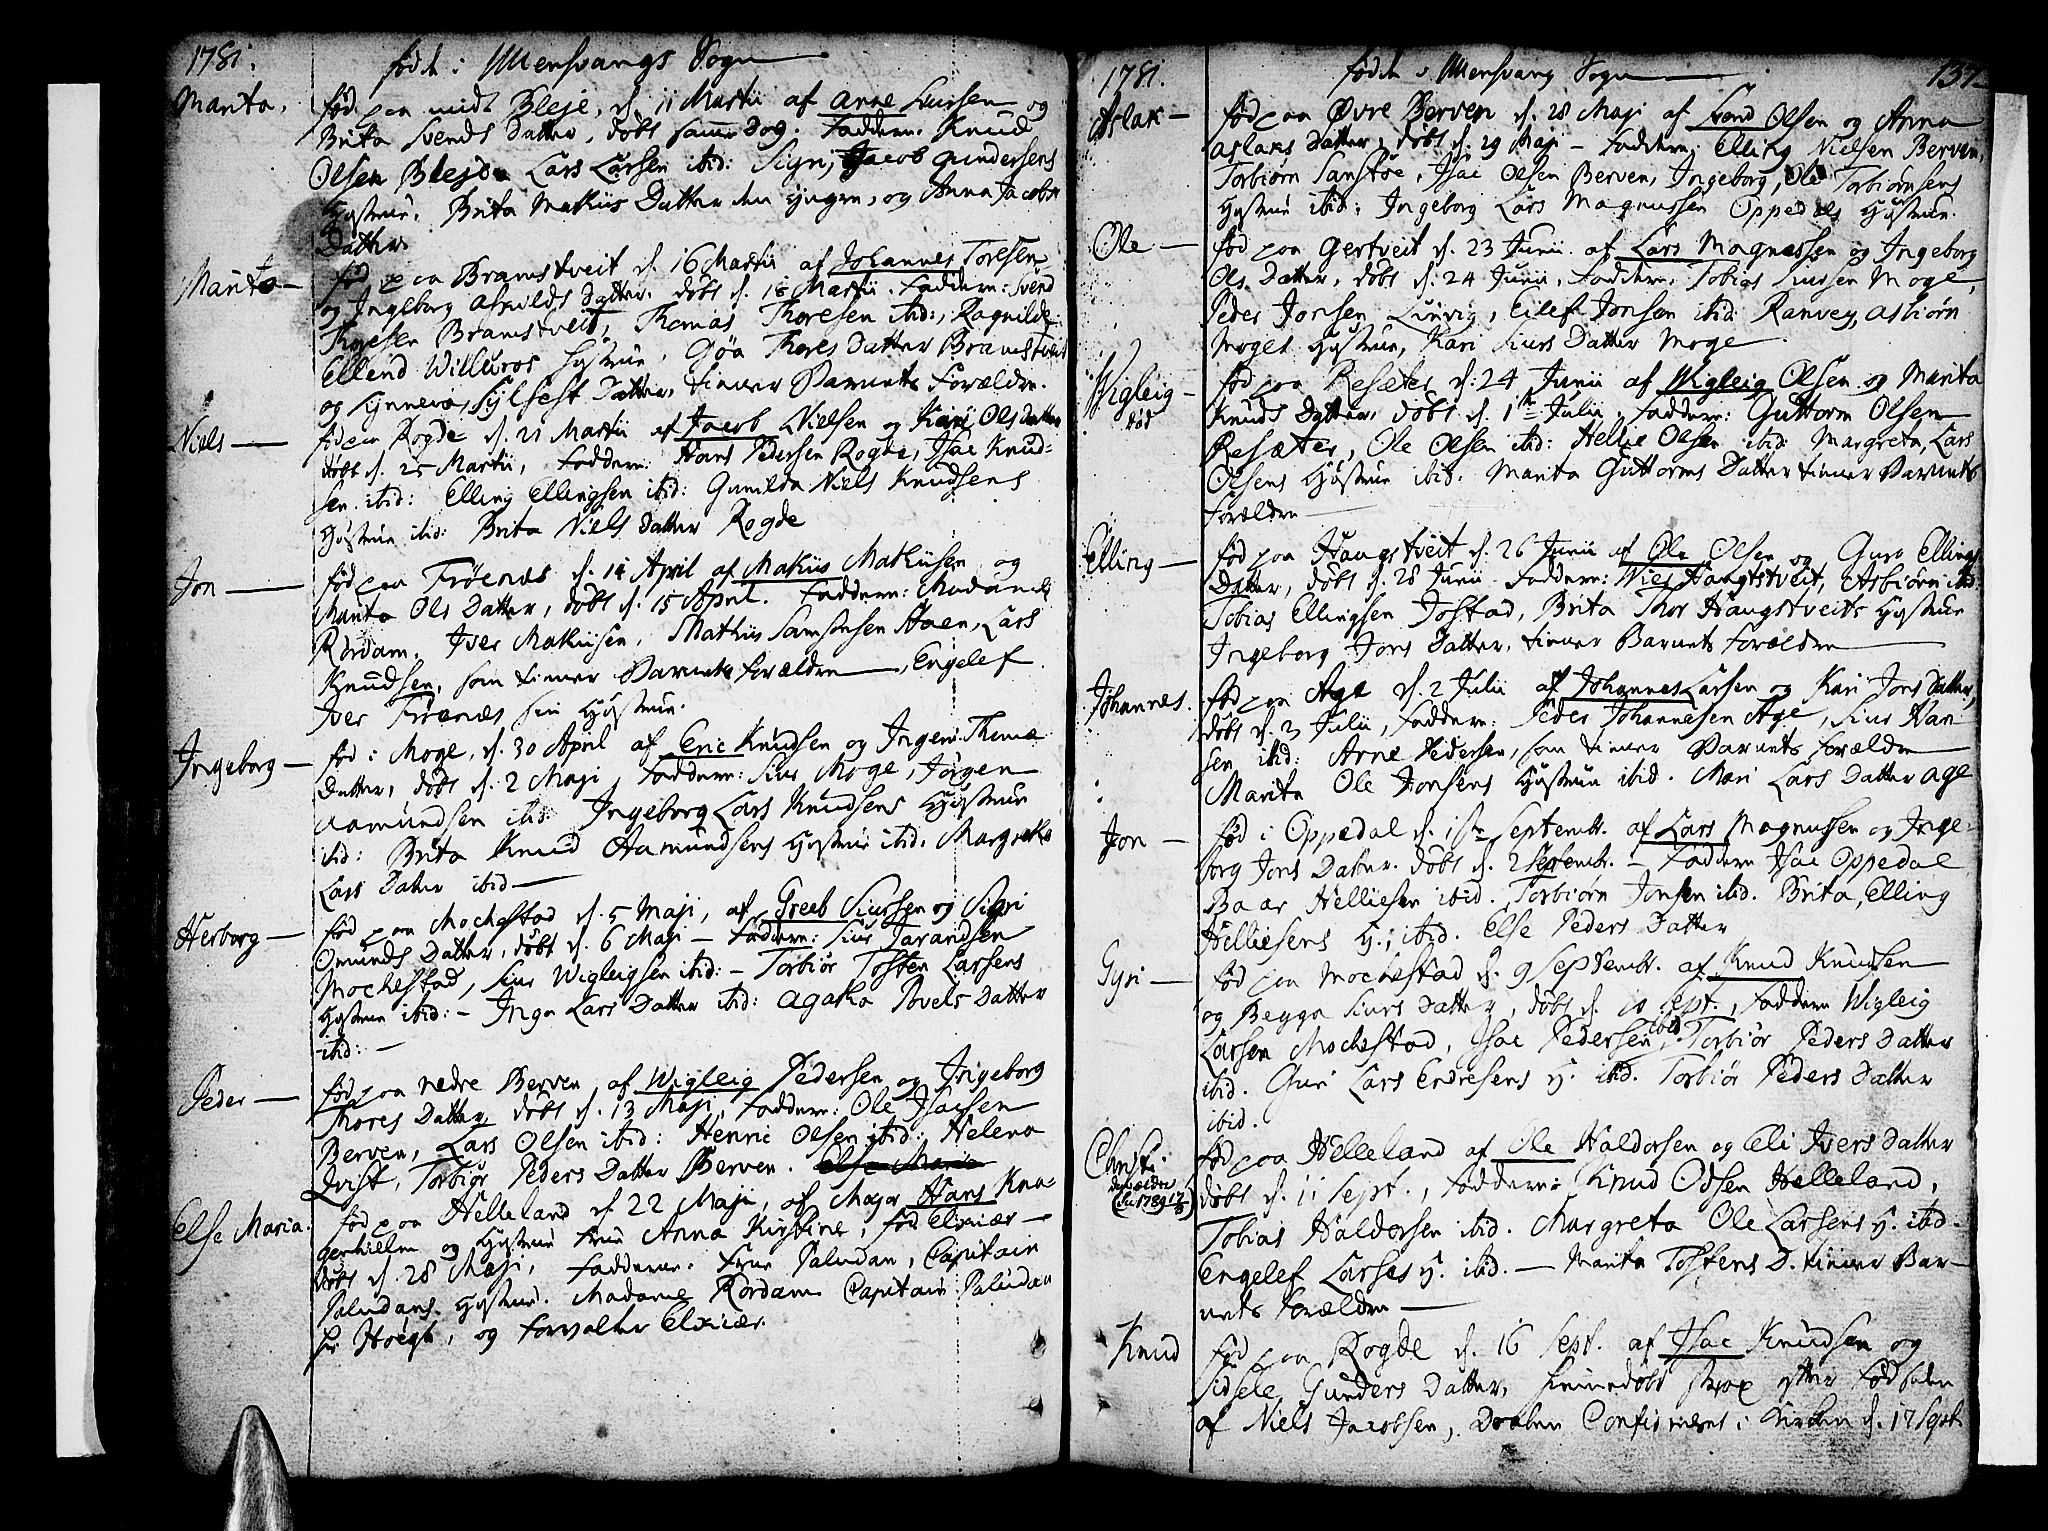 1781.
fødde i Ullensvangs Sogn
Marita.
fød paa midt Bleje, d. 11 Martii af Arne Siursen og
Brita Svends Datter, døbt samme Dag. Faddere: Knud
Olsen Bleje Lars Larsen ibid: Sigri, Jacob Gundersens
Hustrue, Brita Mathiis Datter den yngre, og Anna Jacobs
Datter
Marita
fød paa Bramstveit d. 16 Martii af Johannes Toresen
og Ingeborg Askilds Datter. døbt d. 18 Martii. Faddere: Svend
Bramstveit, Thomas Thoresen ibid:, Ragnilde
Ellend Willuros Hustrue, Gøa Thores Datter Bramstveit
og Synneva, Sylfest Datter, tiener Barnets Forældre.
Niels
fød paa Rogde d. 21 Martii af Jacob Nielsen og Kari Ols Datter
døbt d. 25 Martii, Faddere: Hans Pedersen Rogde, Isac Knud-
sen ibid: Elling Ellingsen ibid: Gunilda Niels Knudsens
Hustrue ibid: Brita Niels Datter Rogde
Jon
fød paa Frøenæs d. 14 April af Mathiis Mathiisen og
Marita Ols Datter, døbt d. 15 April. Faddere: Madame
Rørdam, Iver Mathiisen, Mathiis Samsonsen Aaen, Lars
Knudsen, som tiener Barnets Forældre, Engelef
Iver Frøenæs sin Hustrue.
Ingeborg
fød i Moge, d. 30 April af Eric Knudsen og Inger Thomæ
Datter, døbt d. 2 Maji, Faddere: Siur Moge, Jørgen
Aamundsen ibid: Ingeborg Lars Knudsens Hustrue
ibid: Brita Knud Aamundsens Hustrue ibid. Margreta
Lars Datter ibid
Herborg
fød paa Mochestad d. 5 Maji, af Greeb Siursen og Sigri
Omunds Datter, døbt d. 6 Maji – Faddere: Siur Jarandsen
Mochestad, Siur Wigleigsen ibid: – Torbiør Tosten Larsens
Hustrue ibid: – Inga Lars Datter ibid: Agatha Povels Datter
ibid: –
Peder
fød paa nedre Berven, af Wigleig Pedersen og Ingeborg
Thores Datter, døbt d. 13 Maji, Faddere: Ole Isacsen
Berven, Lars Olsen ibid: Henric Olsen ibid: Helena
Qvist, Torbiør Peders Datter Berven. Else Maria
Else Maria.
fød paa Helleland d. 22 Maji, af Major Hans Kna-
genhielm og Hustrue Frue Anna Kirstine, fød Elxiær
døbt d. 28 Maji, Faddere: Frue Paludan, Capitain
Paludans Hustrue. Madame Rørdam Capitain Paludan
Hr Høegh, og Forvalter Elxiær.
1781.
fødde i Ullensvang Sogn
137
Aslak
fød paa Øvre Berven d. 28 Maji af Svend Olsen og Anna
Aslaks Datter, døbt d. 29 Maji – Faddere: Elling Nielsen Berven,
Torbiørn Sanstøe, Isac Olsen Berven, Ingeborg, Ole Torbiørnsens
Hustrue ibid: Ingeborg Lars Magnussen Oppedals Hustrue.
Ole
fød paa Gertveit d. 23 Junii af Lars Magnussen og Ingeborg
Ols Datter, døbt d. 24 Junii, Faddere: Tobias Siursen Moge,
Peder Jonsen Linvig, Eilef Jonsen ibid: Ranvey, Asbiørn
Moges Hustrue, Kari Siurs Datter Moge.
Wigleig
død
fød paa Resæter d. 24 Junii af Wigleig Olsen og Marita
Knuds Datter, døbt d. 1te Julii, Faddere: Guttorm Olsen
Resæter, Ole Olsen ibid: Hellie Olsen ibid: Margreta, Lars
Olsens Hustrue ibid. Marita Guttorms Datter tiener Barnets
Forældre
Elling
fød paa Haugstveit d. 26 Junii af Ole Olsen og Guro Ellings
Datter, døbt d. 28 Junii Faddere: Niels Haugstveit, Asbiørn ibid:
Tobias Ellingsen Jostad, Brita Thor Haugstveits Hustrue
Ingeborg Jons Datter, tiener Barnets Forældre
Johannes.
fød paa Age d. 2 Julii af Johannes Larsen og Kari Jons Datter,
døbt d. 3 Julii, Faddere: Peder Johannesen Age, Siur Han-
sen ibid: Arne Pedersen, som tiener Barnets Forældre
Marita Ole Jonsens Hustrue ibid. Mari Lars Datter Age
Jon
fød i Oppedal d. 1ste Septembr. af Lars Magnussen og Inge-
borg Jons Datter. døbt d. 2 Septembr. – Faddere Isac Oppedal
Baar Helliesen ibid. Torbiørn Jonsen ibid. Brita, Elling
Helliesens H: ibid. Else Peders Datter
Gyri
fød paa Mochestad d. 9 Septembr. af Knud Knudsen
og Begga Siurs Datter, døbt d. 10 Sept., Faddere Wigleig
Larsen Mochestad, Isac Pedersen ibid, Torbiør Peders Datter
ibid. Guri Lars Endresens H. ibid. Torbiør Peders Datter
ibid.
Christi.
fød paa Helleland af Ole Haldorsen og Eli Ivers Datter
døbt d. 11 Sept., Faddere: Knud Odsen Helleland,
Tobias Haldorsen ibid. Margreta Ole Larsens H. ibid.
Engelef Larses H. ibid. – Marita Tostens D. tiener Bar-
nets Forældre
Knud
fød paa Rogde d. 16 Sept. af Isac Knudsen og
Sidsele Gunders Datter, hiemmedøbt strax efter Fødselen
af Niels Jacobsen, Daaben Confirmeret i Kirken d. 17 Sept.